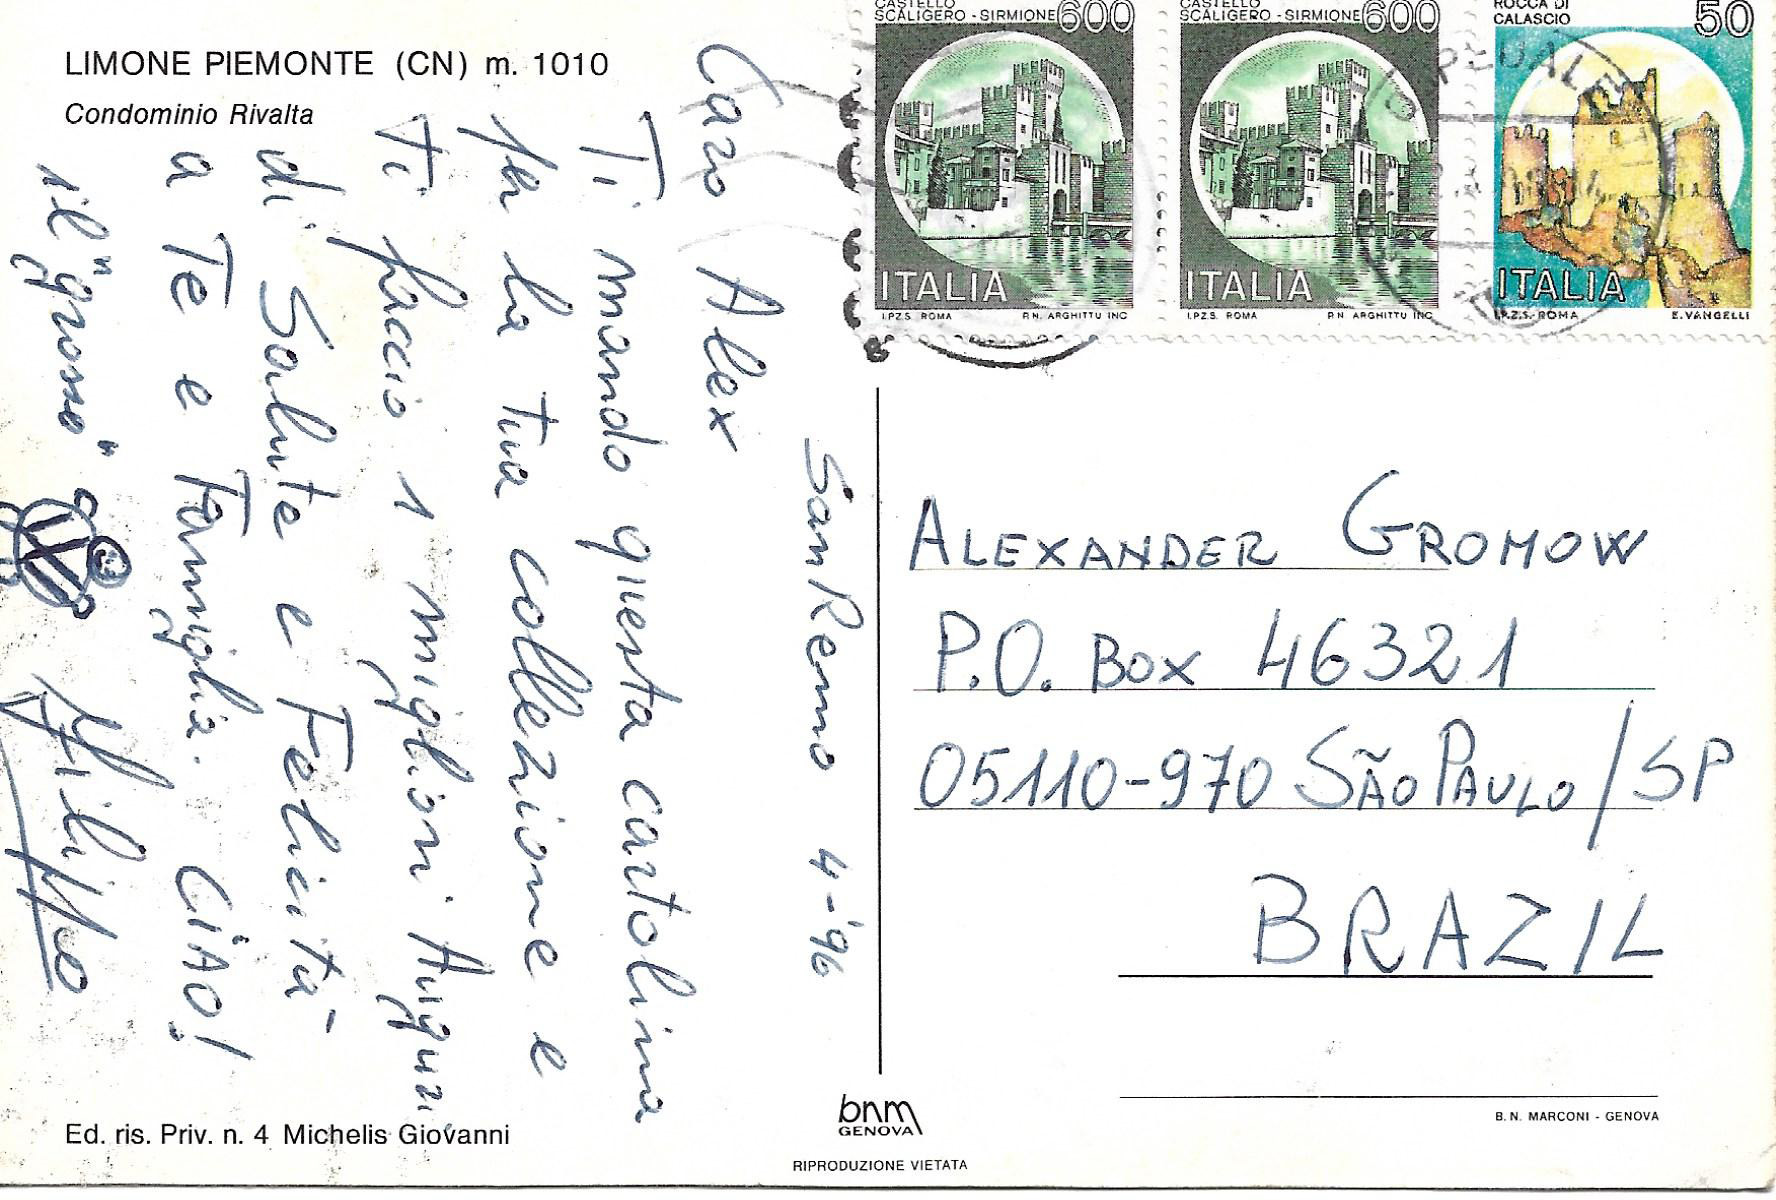 LIMONE PIEMONTE (CN) m. 1010
Condominio Rivalta
SanRemo 4-'96
Caro Alex
Ti mando questa cartolina
per la tua collezione e
ti faccio 1 migliori Auguri
di Salute e Felicità
a Te e Famiglia. CIAO!
il "grosso"
Filippo
Ed. ris. Priv. n. 4 Michelis Giovanni
CASTELLO
SCALIGERO - SIRMIONE 600
ITALIA
I.P.Z.S. ROMA P.N. ARGHITTU INC
CASTELLO
SCALIGERO - SIRMIONE 600
ITALIA
I.P.Z.S. ROMA P.N. ARGHITTU INC
ROCCA DI
CALASCIO 50
ITALIA
I.P.Z.S. - ROMA E. VANGELLI
ALEXANDER GROMOW
P.O. BOX 46321
05110-970 SÃO PAULO/SP
BRAZIL
bnm
GENOVA
B.N. MARCONI - GENOVA
RIPRODUZIONE VIETATA